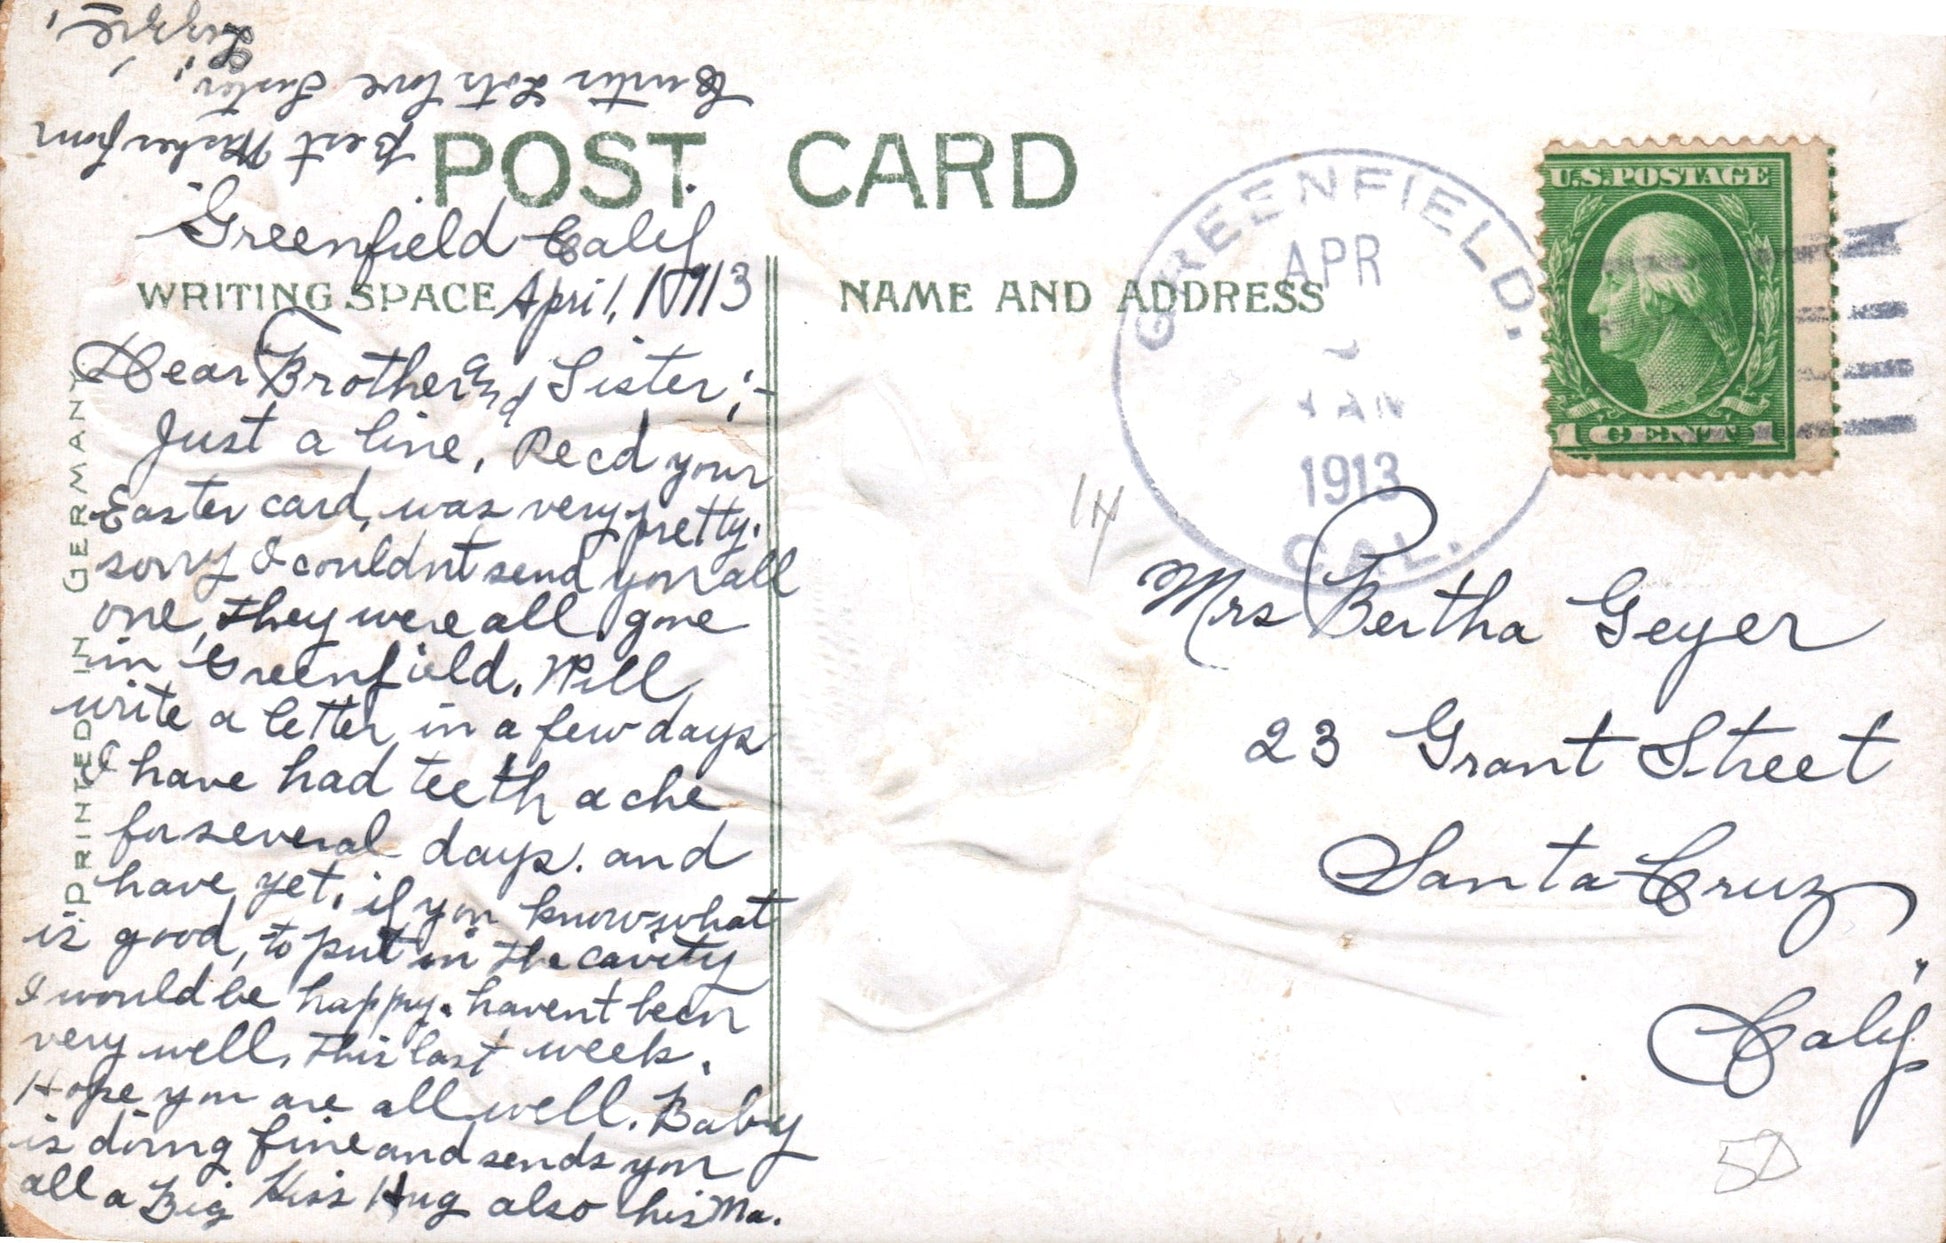 POST CARD
WRITING SPACE
NAME AND ADDRESS
PRINTED IN GERMANY
Greenfield Calif
April, 1913
Dear Brother and Sister;-
Just a line, Recd your
Easter card, was very pretty.
sorry I couldnt send you all
one, they were all gone
in Greenfield. Will
write a letter in a few days
I have had teeth ache
for several days. and
have yet, if you know what
is good, to put in the cavity
I would be happy. havent been
very well, this last week.
Hope you are all well. Baby
is doing fine and sends you
all a Big Kiss Hug also his Ma.
Best Wishes from
Curtis Lots love Sister,
Lizzie,
GREENFIELD,
APR
1
AM
1913
CAL.
U.S. POSTAGE
1 CENT 1
14
Mrs Bertha Geyer
23 Grant Street
Santa Cruz,
Calif
50